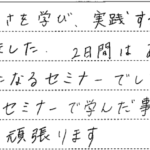 さを学び、実践す
ました。2日間は
になるセミナーでし
セミナーで学んだ事
頑張ります